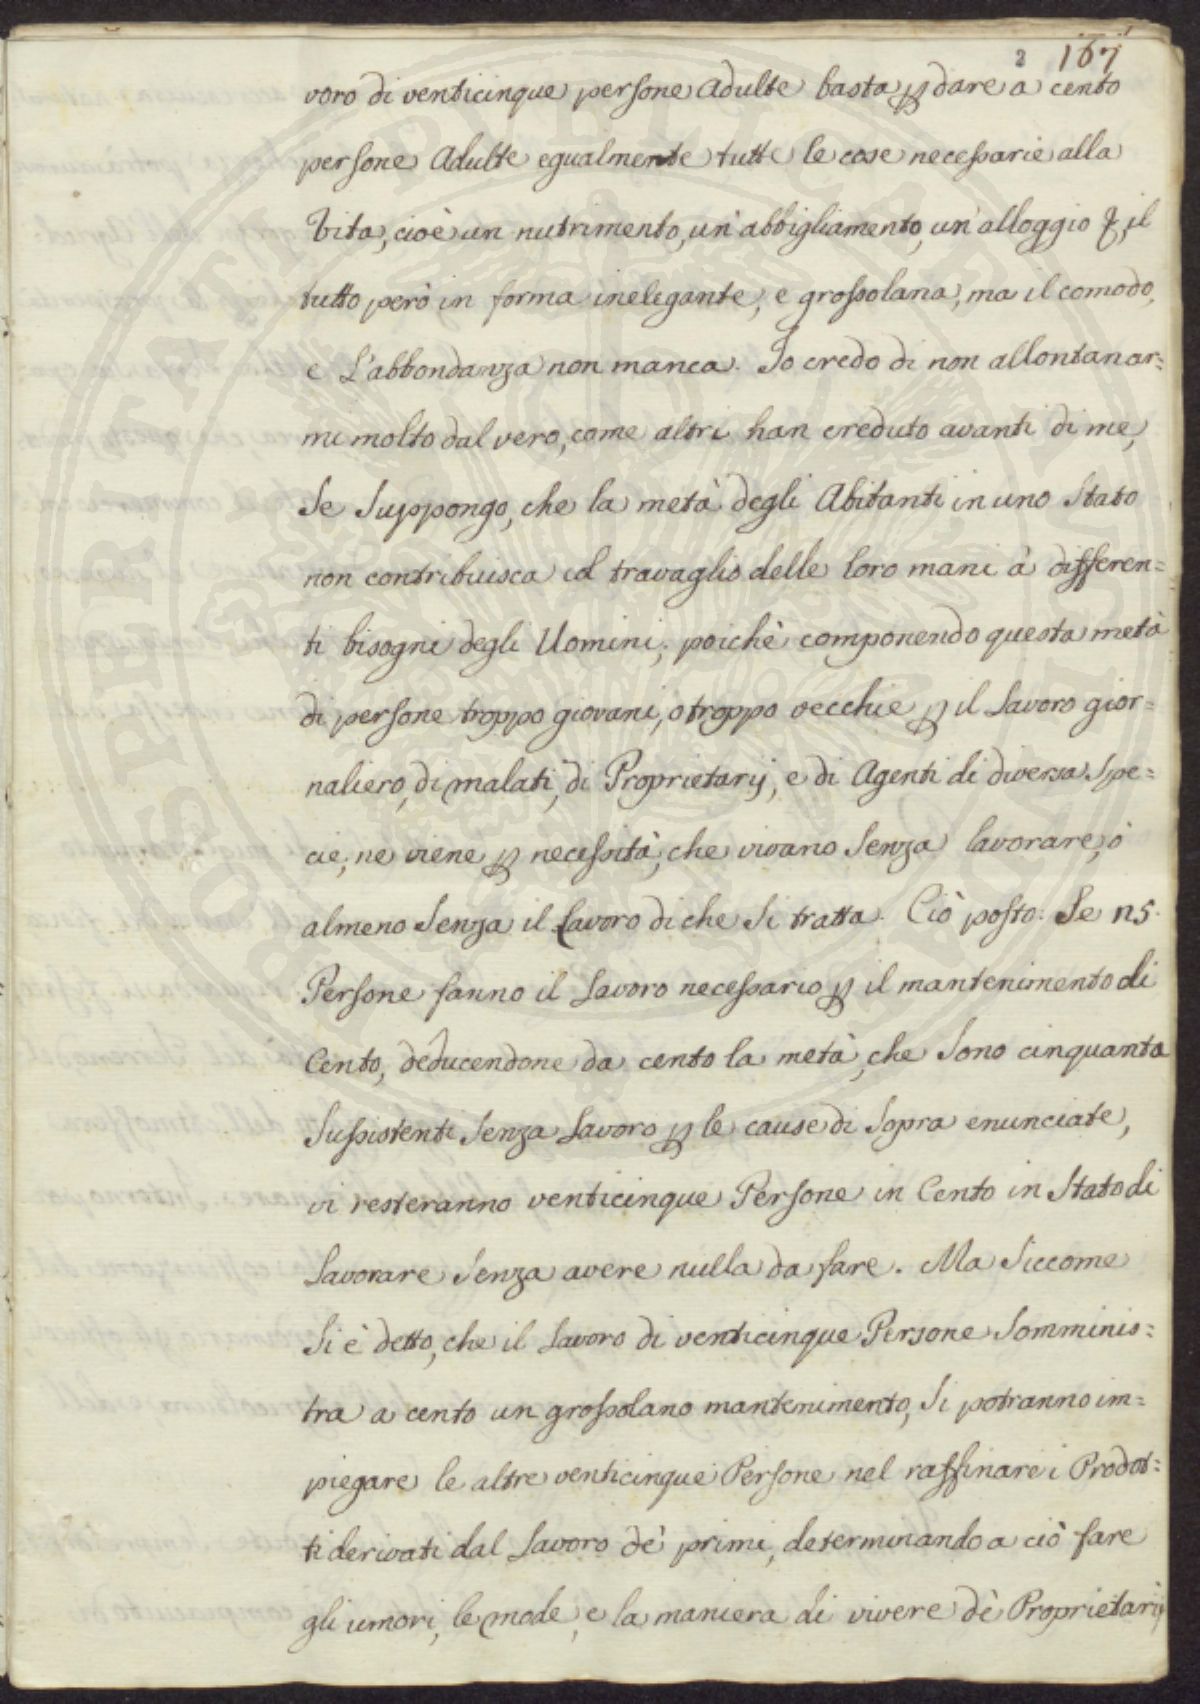 2 167
voro di venticinque persone Adulte basta p dare a cento
persone Adulte egualmente tutte le cose necessarie alla
Vita, cioè un nutrimento, un'abbigliamento, un'alloggio &, il
tutto però in forma inelegante, e grossolana, ma il comodo,
e L'abbondanza non manca. Io credo di non allontanar=
mi molto dal vero, come altri han creduto avanti di me,
Se Suppongo, che la metà degli Abitanti in uno Stato
non contribuisca col travaglio delle loro mani à differen=
ti bisogni degli Uomini; poichè componendo questa metà
di persone troppo giovani, o troppo vecchie p il Lavoro gior=
naliero, di malati, di Proprietarij, e di Agenti di diversa Spe=
cie, ne viene p necessità, che vivano Senza lavorare, ò
almeno Senza il Lavoro di che Si tratta. Ciò posto: Se 25.
Persone fanno il Lavoro necessario p il mantenimento di
Cento, deducendone da cento la metà, che Sono cinquanta
Sussistenti Senza Lavoro p le cause di Sopra enunciate,
vi resteranno venticinque Persone in Cento in Stato di
Lavorare Senza avere nulla da fare. Ma Siccome
Si è detto, che il Lavoro di venticinque Persone Somminis=
tra a cento un grossolano mantenimento, Si potranno im=
piegare le altre venticinque Persone nel raffinare i Prodot=
ti derivati dal Lavoro dè primi, determinando a ciò fare
gli umori, le mode, e la maniera di vivere dè Proprietarij